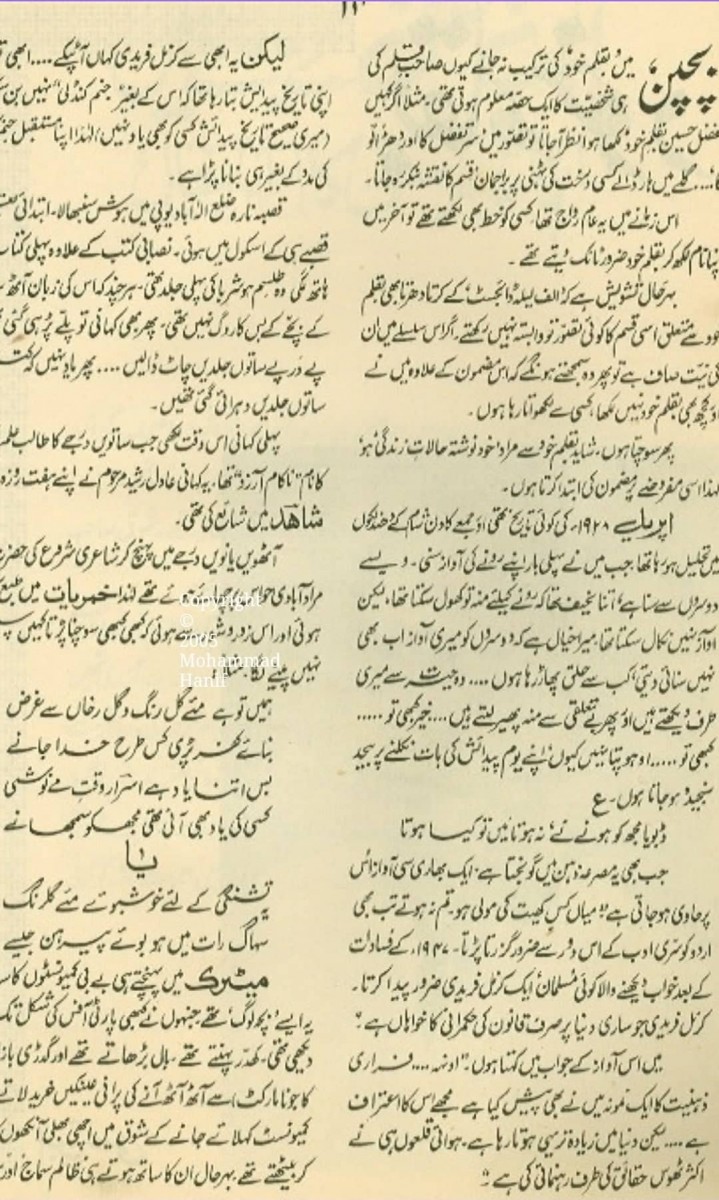 بچپن، میں بقلم خود کی ترکیب نہ جانے کیوں صاحب قلم کی
ہی شخصیت کا ایک حصہ معلوم ہوتی تھی۔ مثلاً اگر کہیں
فضل حسین بقلم خود لکھا ہوا نظر آجاتا تو تصور میں سر تفضل کا اور دھڑ الّو
گلے میں ہار ڈالے کسی درخت کی ٹہنی پر براجمان قسم کا نقشہ بنکر رہ جاتا۔
اس زمانے میں یہ عام رواج تھا کسی کو خط بھی لکھتے تھے تو آخر میں
اپنا نام لکھ کر بقلم خود ضرور ٹانک دیتے تھے۔
بہرحال تشویش ہے کہ الف لیلہ ڈائجسٹ کے کرتا دھرتا بھی بقلم
خود سے متعلق اسی قسم کا کوئی تصور تو وابستہ نہیں رکھتے۔ اگر اس سلسلے میں ان
کی نیت صاف ہے تو پھر وہ سمجھتے ہونگے کہ اس مضمون کے علاوہ میں نے
جو کچھ بھی بقلم خود نہیں لکھا، کسی سے لکھواتا رہا ہوں۔
پھر سوچتا ہوں۔ شاید بقلم خود سے مراد خود نوشتہ حالاتِ زندگی ہو
لہٰذا اسی مفروضے پر مضمون کی ابتدا کرتا ہوں۔
اپریل ۱۹۲۸ء کی کوئی تاریخ تھی اور جمعے کا دن شام کے دھندلکوں
میں تحلیل ہو رہا تھا جب میں نے پہلی بار اپنے رونے کی آواز سنی۔ ویسے
دوسروں سے سنا ہے اتنا نحیف تھا کہ رونے کیلئے منہ تو کھول سکتا تھا، لیکن
آواز نہیں نکال سکتا تھا۔ میرا خیال ہے کہ دوسروں کو میری آواز اب بھی
نہیں سنائی دیتی اکب سے حلق پھاڑ رہا ہوں .... وہ حیرت سے میری
طرف دیکھتے ہیں اور پھر بے تعلقی سے منہ پھیر لیتے ہیں ... خیر کبھی تو .....
کبھی تو ..... اوہو پتا نہیں کیوں اپنے یوم پیدائش کی بات نکلنے پر بیحد
سنجیدہ ہو جاتا ہوں۔ ع
ڈبویا مجھ کو ہونے نے نہ ہوتا میں تو کیسا ہوتا
جب بھی یہ مصرعہ ذہن میں گونجتا ہے۔ ایک بھاری سی آواز اس
پر حاوی ہو جاتی ہے۔ "میاں کس کھیت کی مولی ہو۔ تم نہ ہوتے تب بھی
اردو کو سری ادب کے اس دور سے ضرور گزرنا پڑتا۔ ۱۹۴۷ء کے فسادات
کے بعد خواب دیکھنے والا کوئی مسلمان ایک کرنل فریدی ضرور پیدا کرتا۔
کرنل فریدی جو ساری دنیا پر صرف قانون کی حکمرانی کا خواہاں ہے"
میں اس آواز کے جواب میں کہتا ہوں۔ "اونہہ .... فراری
ذہنیت کا ایک نمونہ میں نے بھی پیش کیا ہے۔ مجھے اس کا اعتراف
ہے .... لیکن دنیا میں زیادہ تر یہی ہوتا رہا ہے۔ ہوائی قلعوں ہی نے
اکثر ٹھوس حقائق کی طرف رہنمائی کی ہے"
لیکن یہ ابھی سے کرنل فریدی کہاں آ ٹپکے .... ابھی
اپنی تاریخ پیدائش بتا رہا تھا کہ اس کے بغیر جنم کنڈلی نہیں بن
(میری صحیح تاریخ پیدائش کسی کو بھی یاد نہیں، لہٰذا اپنا مستقبل
کی مدد کے بغیر ہی بنانا پڑا ہے۔
قصبہ نارہ ضلع الہ آباد یوپی میں ہوش سنبھالا۔ ابتدائی
قصبے ہی کے اسکول میں ہوئی۔ نصابی کتب کے علاوہ پہلی کتاب
ہاتھ لگی وہ طلسم ہوشربا کی پہلی جلد تھی۔ ہر چند کہ اس کی زبان آٹھ
کے بچے کے بس کا روگ نہیں تھی۔ پھر بھی کہانی تو پلّے پڑ ہی گئی
پے در پے ساتوں جلدیں چاٹ ڈالیں .... پھر یاد نہیں کہ
ساتوں جلدیں دہرائی گئی تھیں۔
پہلی کہانی اس وقت لکھی جب ساتویں درجے کا طالب علم
کا نام "ناکام آرزو" تھا۔ یہ کہانی عادل رشید مرحوم نے اپنے ہفت روزہ
شاھد میں شائع کی تھی۔
آٹھویں یا نویں درجے میں پہنچ کر شاعری شروع کی حضرت
مرادآبادی حواس پر چھائے ہوئے تھے لہٰذا خمریات میں طبع
ہوئی اور اس زور و شور سے ہوئی کہ کبھی کبھی سوچنا پڑتا کہیں
نہیں پینے لگا۔ مثلاً:
Copyright
©
2005
Mohammad
Hanif
ہمیں تو ہے مئے گل رنگ و گل رخاں سے غرض
بنائے کفر پڑی کس طرح خدا جانے
بس اتنا یاد ہے اسرار وقتِ مے نوشی
کسی کی یاد بھی آئی تھی مجھ کو سمجھانے
یا
یہ تشنگی کے لئے خوشبوئے مئے گلرنگ
سہاگ رات میں ہو بوئے پیرہن جیسے
میٹرک میں پہنچتے ہی بے بی کمیونسٹوں کا
یہ ایسے بچہ لوگ تھے جنہوں نے کبھی پارٹی آفس کی شکل تک
دیکھی تھی۔ کھدر پہنتے تھے۔ بال بڑھاتے تھے اور گدڑی
کا جوتا مارکٹ) سے آٹھ آٹھ آنے کی پرانی عینکیں خرید لاتے
کمیونسٹ کہلائے جانے کے شوق میں اچھی بھلی آنکھوں
کر بیٹھتے تھے۔ بہرحال ان کا ساتھ ہوتے ہی ظالم سماج اور